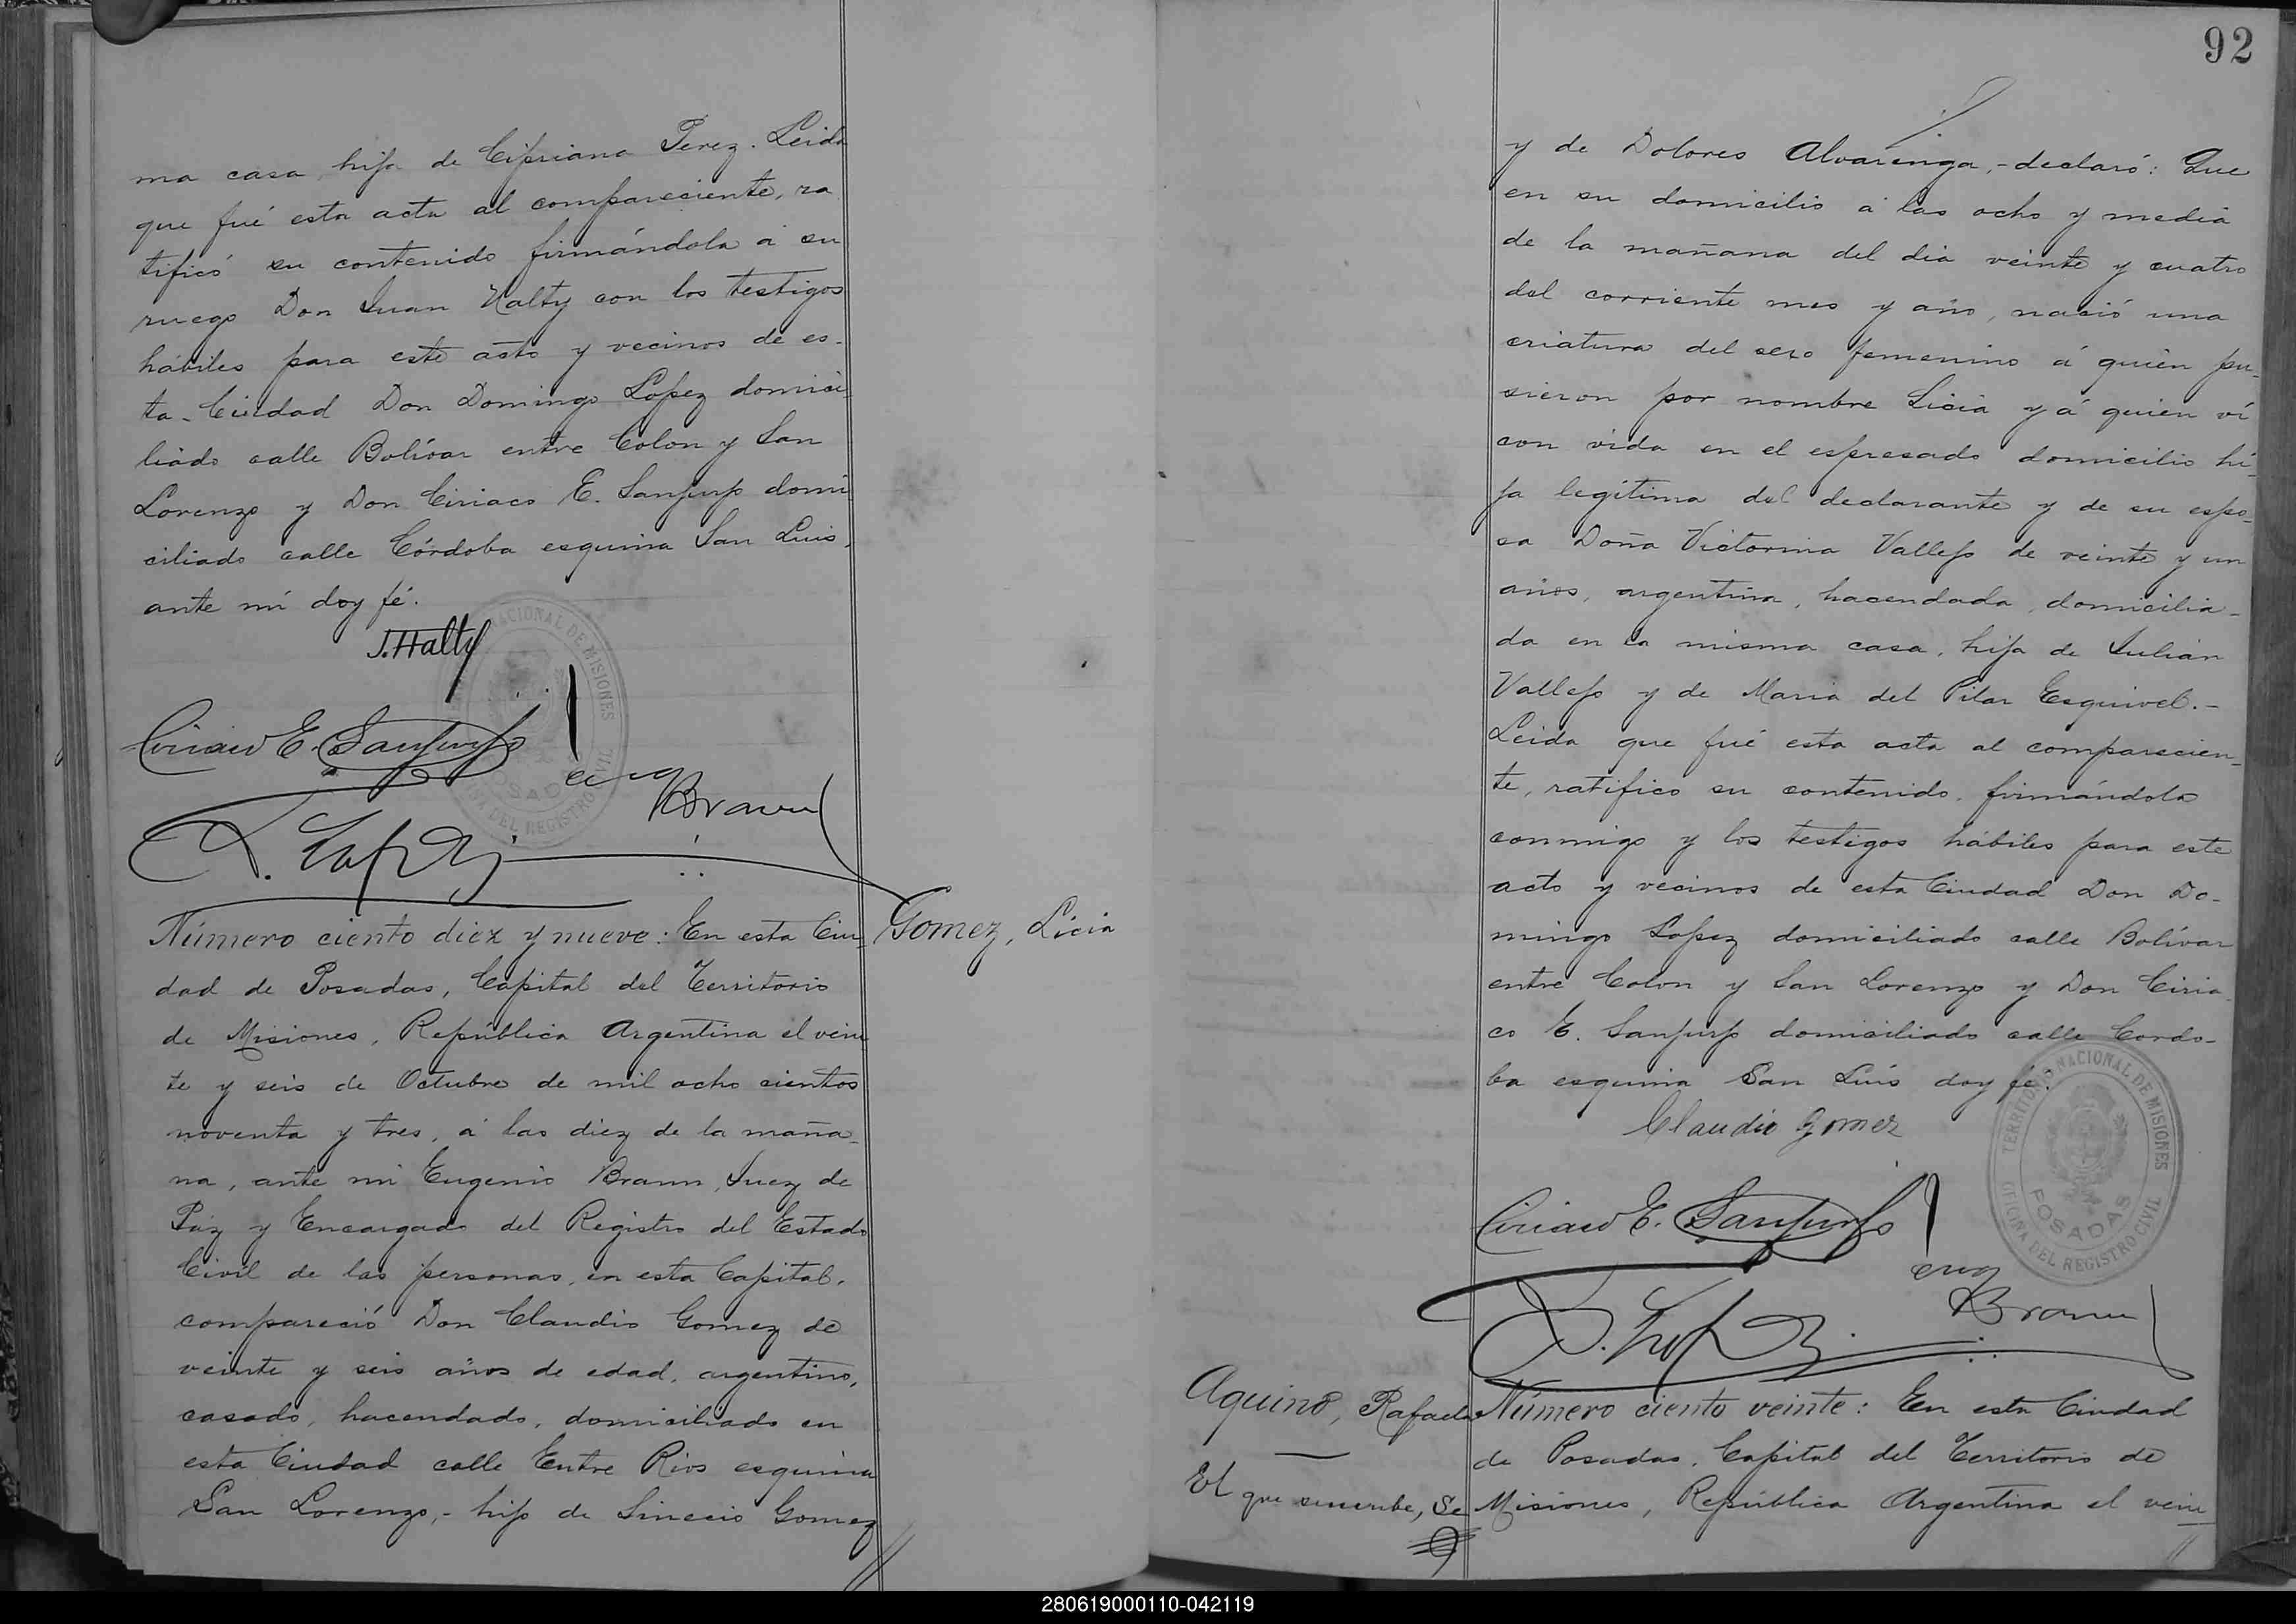 ma casa, hija de Cipriana Perez. Leida
que fué esta acta al compareciente, ra
tificó su contenido firmándola á su
ruego Don Juan Halty con los testigos
hábiles para este acto y vecinos de es-
ta Ciudad Don Domingo Lopez domici
liado calle Bolívar entre Colon y San
Lorenzo y Don Ciriaco E. Sanjurjo domi
ciliado calle Córdoba esquina San Luis,
ante mi doy fé.
J. Halty
Ciriaco E. Sanjurjo
Eug Braun
D. Lopez
TERRITORIO NACIONAL DE MISIONES
POSADAS
OFICINA DEL REGISTRO CIVIL
Gomez, Licia
Número ciento diez y nueve: En esta Ciu
dad de Posadas, Capital del Territorio
de Misiones, República Argentina el vein
te y seis de Octubre de mil ocho cientos
noventa y tres, á las diez de la maña-
na, ante mi Eugenio Braun, Juez de
Paz y Encargado del Registro del Estado
Civil de las personas, en esta Capital,
compareció Don Claudio Gomez de
veinte y seis años de edad, argentino,
casado, hacendado, domiciliado en
esta Ciudad calle Entre Rios esquina
San Lorenzo,- hijo de Sinecio Gomez
92
y de Dolores Alvarenga,-declaró: Que
en su domicilio á las ocho y media
de la mañana del dia veinte y cuatro
del corriente mes y año, nació una
criatura del sexo femenino á quien pu-
sieron por nombre Licia y á quien ví
con vida en el espresado domicilio hi-
ja legítima del declarante y de su espo-
sa Doña Victorina Vallejo de veinte y un
años, argentina, hacendada, domicilia-
da en la misma casa, hija de Julian
Vallejo y de Maria del Pilar Esquivel.-
Leida que fué esta acta al comparecien-
te, ratifico su contenido, firmándola
conmigo y los testigos hábiles para este
acto y vecinos de esta Ciudad Don Do-
mingo Lopez domiciliado calle Bolívar
entre Colon y San Lorenzo y Don Ciria-
co E. Sanjurjo domiciliado calle Cordo-
ba esquina San Luis doy fé.
Claudio Gomez
Ciriaco E. Sanjurjo
Eug Braun
D. Lopez
TERRITORIO NACIONAL DE MISIONES
POSADAS
OFICINA DEL REGISTRO CIVIL
Aquino, Rafaela
El que suscribe, Se
Número ciento veinte: En esta Ciudad
de Posadas, Capital del Territorio de
Misiones, República Argentina el vein
280619000110-042119